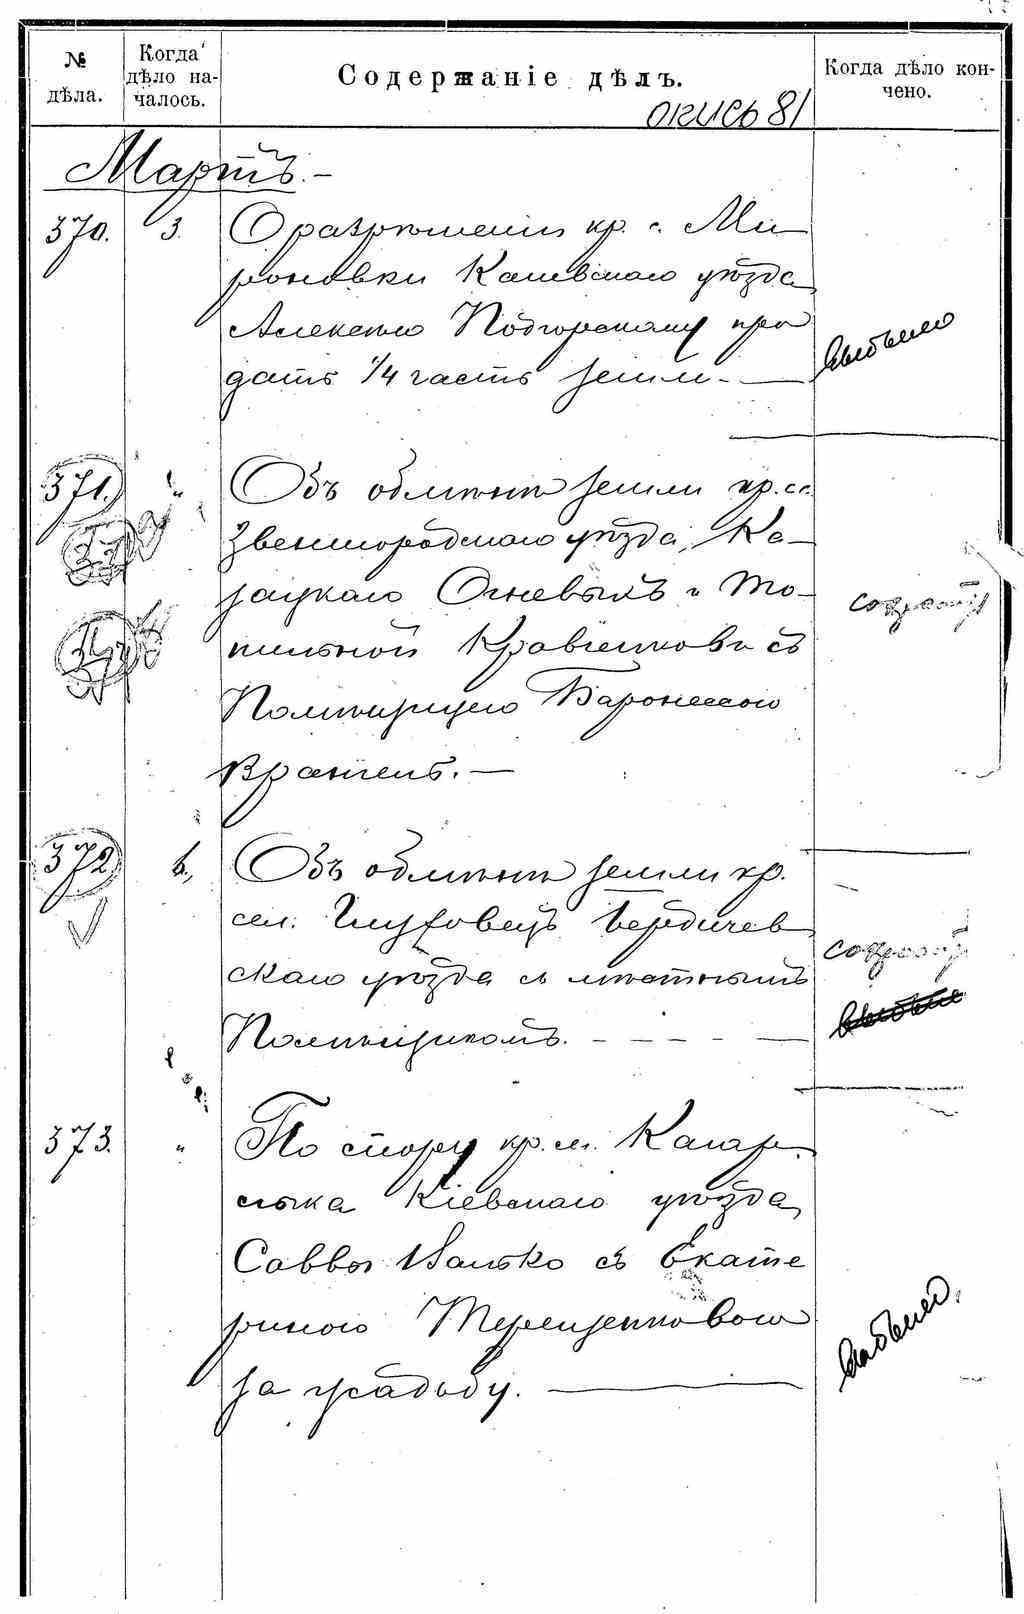 № дѣла.
Когда дѣло на-
чалось.
Содержаніе дѣлъ.
Когда дѣло кон-
чено.
опись 81
Мартъ.-
370. 3. О разрѣшеніи кр. с. Ми-
роновки Каневскаго уѣзда
Алексѣю Подгорскому про
дать 1/4 часть земли.-
выбыло
371. " Объ обмѣнѣ земли кр. сс.
Звенигородскаго уѣзда, Ка-
зацкаго Огневыхъ и То-
пильной Кравченкова съ
Помѣщицею Баронессою
Врангель.-
сохранить
372 6., Объ обмѣнѣ земли кр.
сел. Глуховецъ Бердичев
скаго уѣзда съ мѣстнымъ
Помѣщикомъ.
выбыло
373. " По спору кр. м. Кагар-
лыка Кіевскаго уѣзда,
Саввы Валько съ Екате
риною Терещенковою
за усадьбу.
выбыло